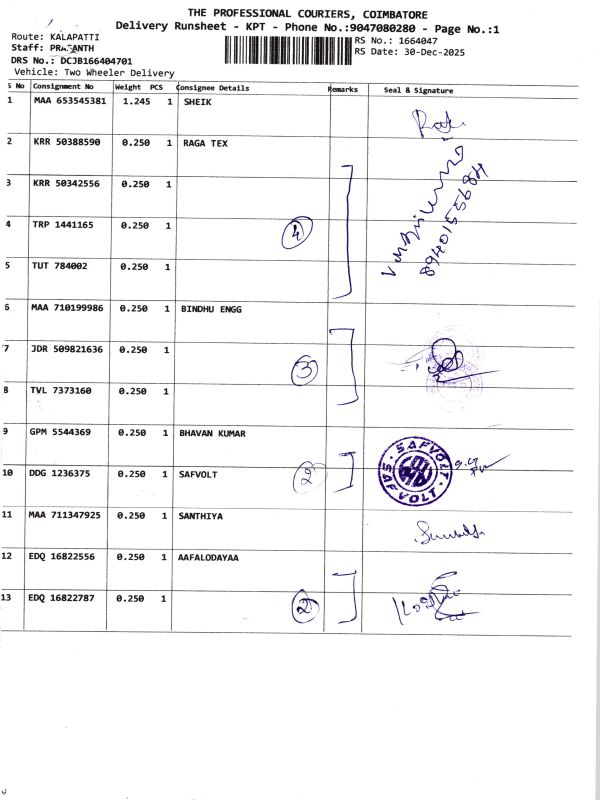 THE PROFESSIONAL COURIERS, COIMBATORE
Delivery Runsheet - KPT - Phone No.:9047080280 - Page No.:1
Route: KALAPATTI
RS No.: 1664047
Staff: PRASANTH
RS Date: 30-Dec-2025
DRS No.: DCJB166404701
Vehicle: Two Wheeler Delivery
S No Consignment No Weight PCS Consignee Details Remarks Seal & Signature
1 MAA 653545381 1.245 1 SHEIK
2 KRR 50388590 0.250 1 RAGA TEX
3 KRR 50342556 0.250 1
4 TRP 1441165 0.250 1 4
8940155684
5 TUT 784002 0.250 1
6 MAA 710199986 0.250 1 BINDHU ENGG
7 JDR 509821636 0.250 1 3
8 TVL 7373160 0.250 1
9 GPM 5544369 0.250 1 BHAVAN KUMAR
10 DDG 1236375 0.250 1 SAFVOLT 2 SAFVOLT SAFVOLT
11 MAA 711347925 0.250 1 SANTHIYA
12 EDQ 16822556 0.250 1 AAFALODAYAA
13 EDQ 16822787 0.250 1 2